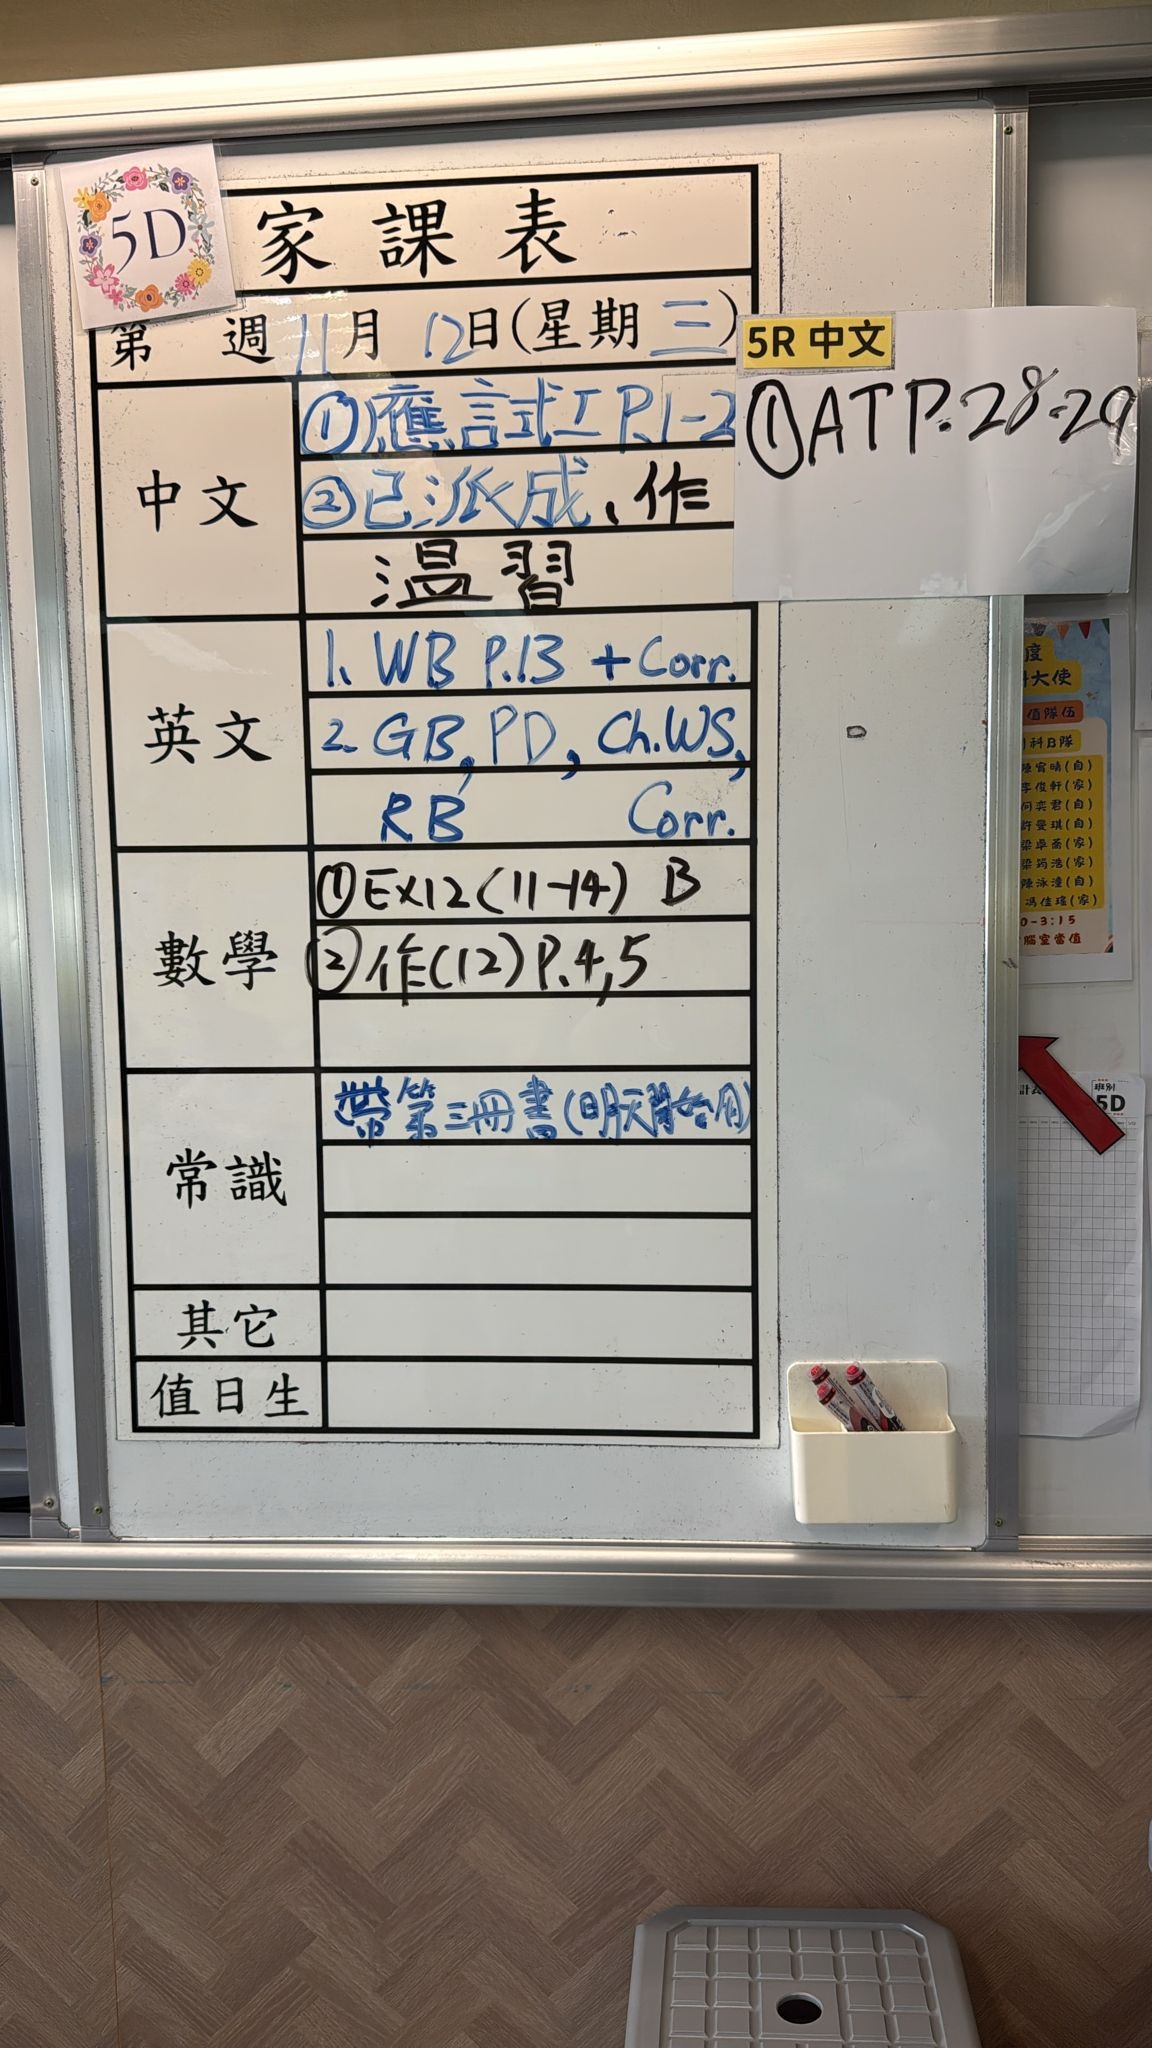 5D
家課表
第 週 11月 12日(星期三)
中文
①應言式工 P.1-2
②已派成、作
溫習
5R 中文
①AT P.28-29
英文
1. WB P.13 + Corr.
2. GB, PD, Ch.WS,
RB Corr.
數學
①Ex12(11-14) B
②作(12)P.4,5
常識
帶第三冊書(明天開始用)
其它
值日生
度
大使
值隊伍
科B隊
(自)
李俊軒(家)
何奕君(自)
許曼琪(自)
梁卓喬(家)
梁筠浩(家)
陳泳潼(自)
馮佳瑤(家)
0-3:15
腦室當值
班別
5D